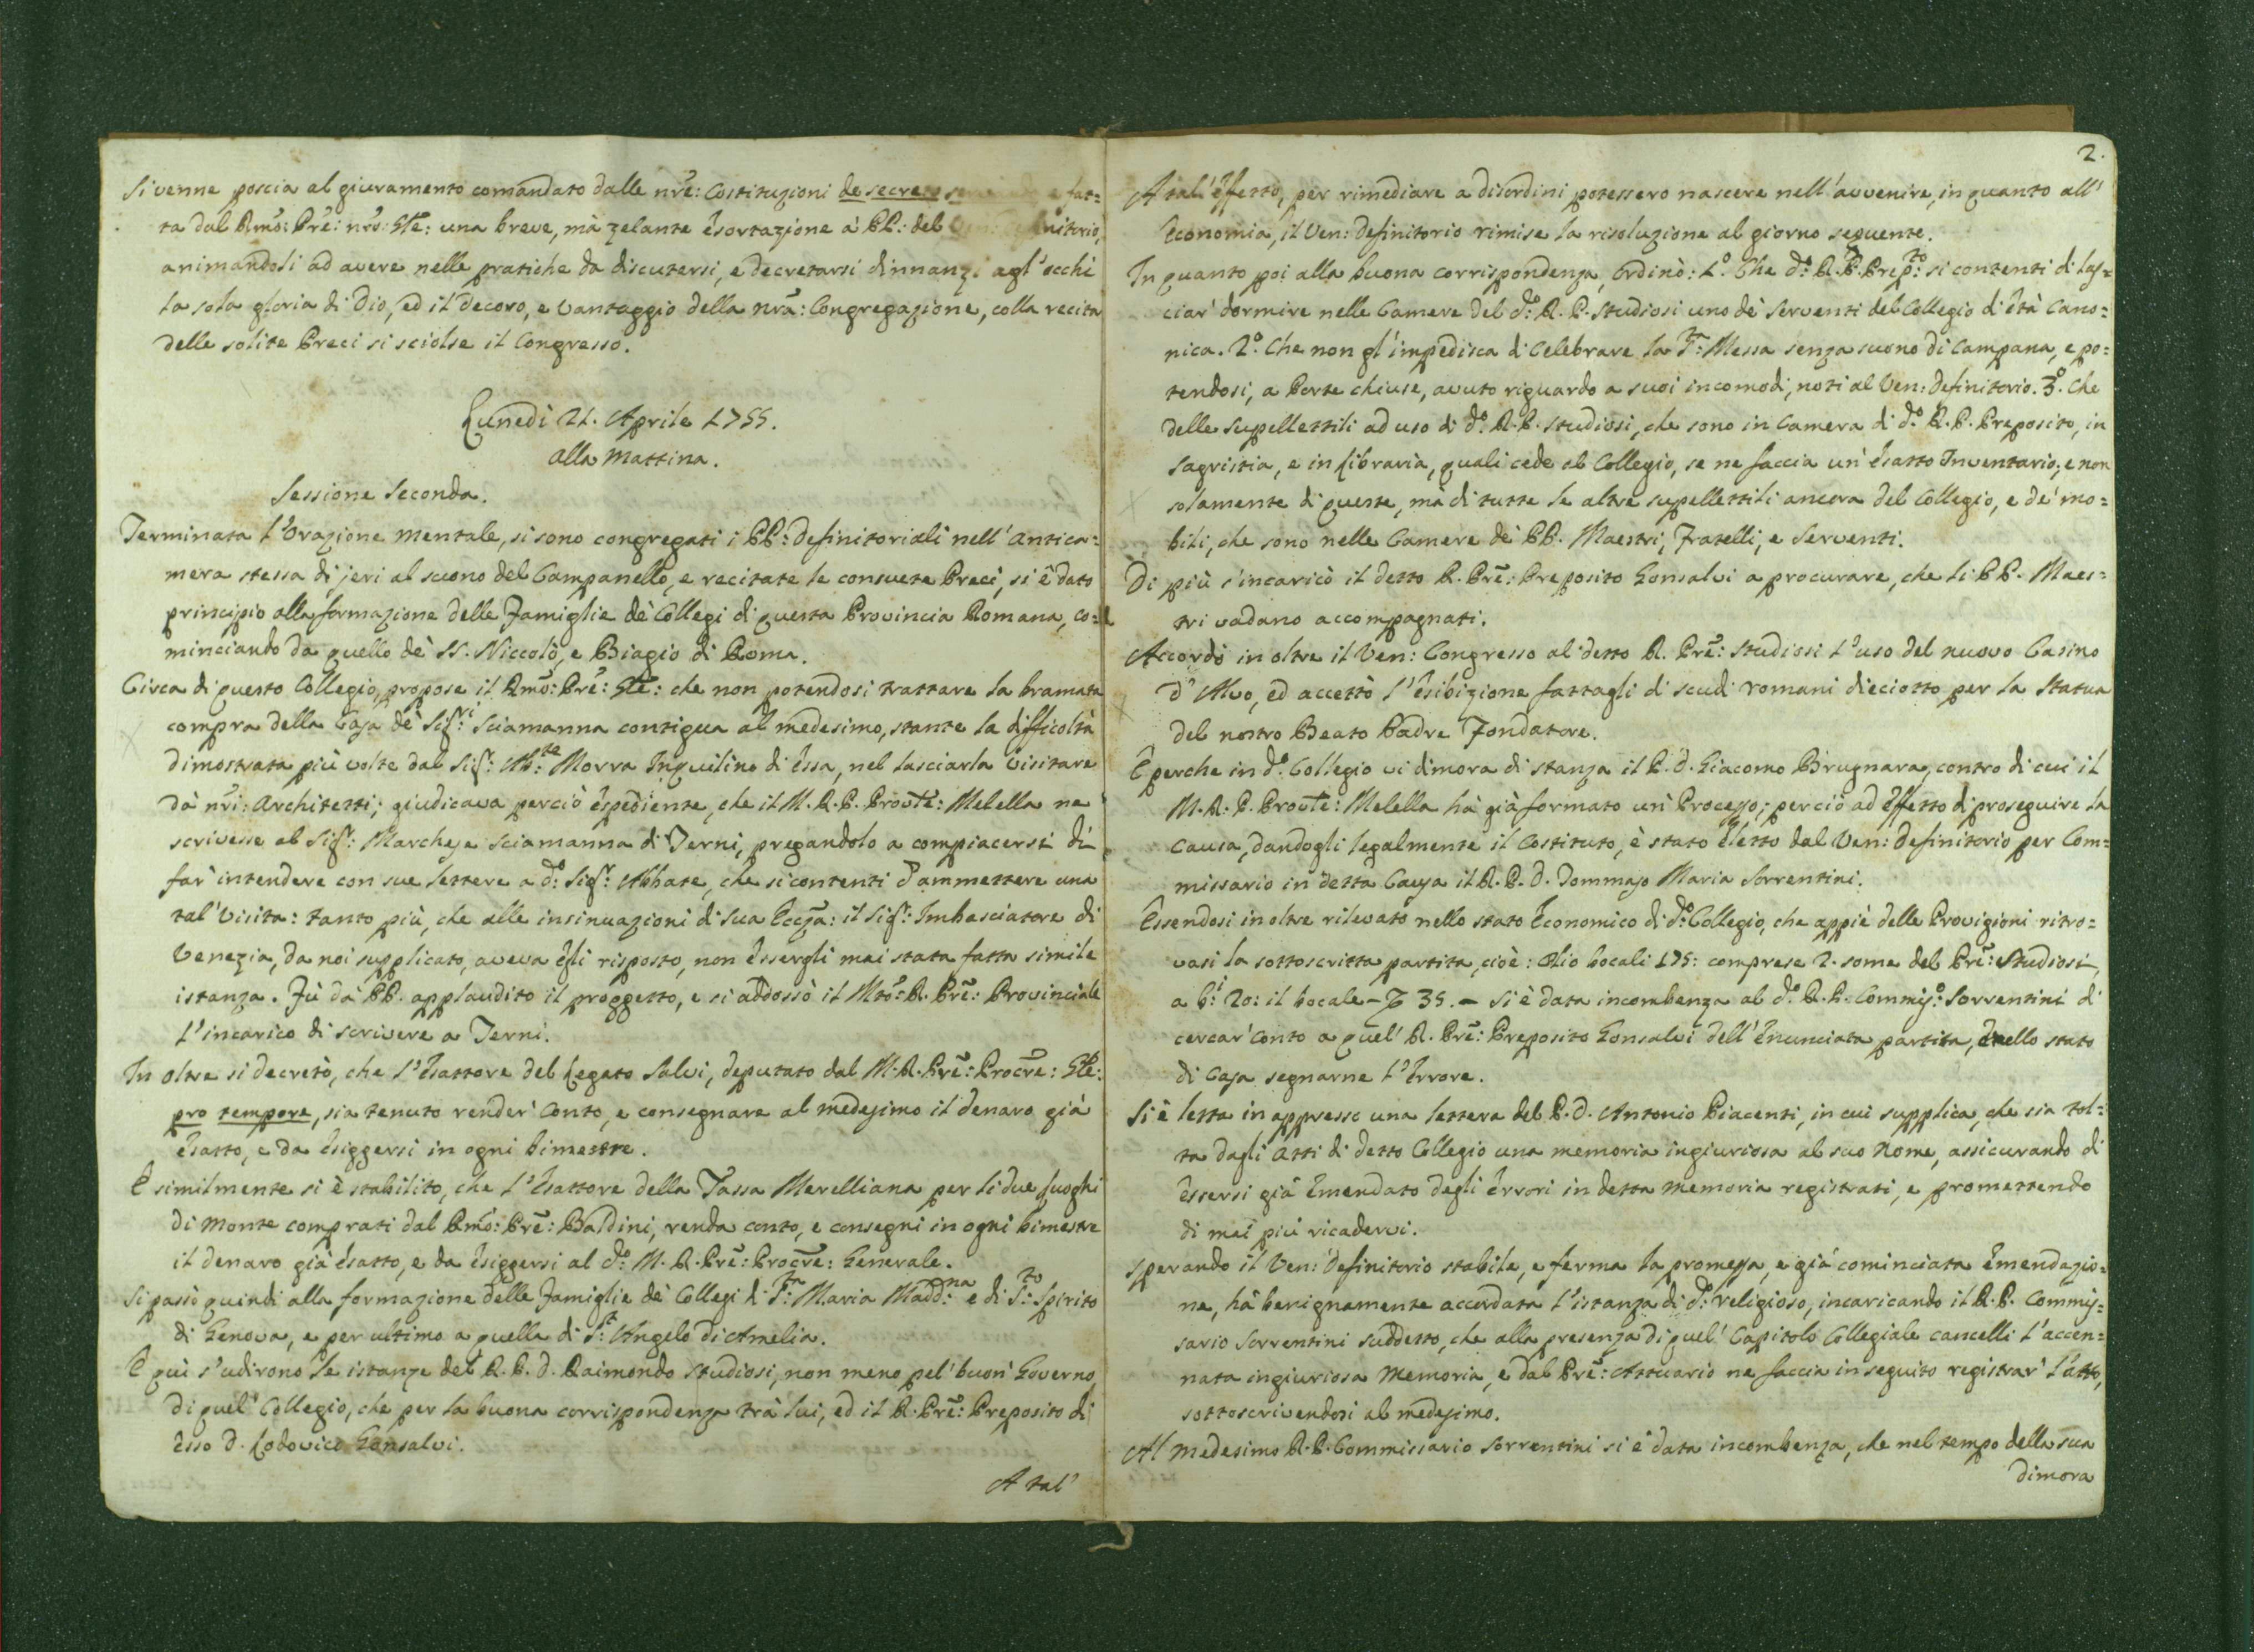 Si venne poscia al giuramento comandato dalle nrē: Costituzioni de secre e fat=
ta dal Rmō: Prē: nrō: Glē: una breve, mà zelante esortazione à PP: del Ven: Definitorio,
animandoli ad avere nelle pratiche da discutersi, e decretarsi dinnanzi agl'occhi
la sola gloria di Dio, ed il decoro, e vantaggio della nrā: Congregazione, colla recita
delle solite Preci si sciolse il Congresso.
Lunedì 21. Aprile 1755.
alla mattina.
Sessione Seconda.
Terminata l'Orazione mentale, si sono congregati i PP: Definitoriali nell'antica=
mera stessa di jeri al suono del Campanello, e recitate le consuete Preci, si è dato
principio alla formazione delle Famiglie dè Collegi di questa Provincia Romana, co=
minciando da quello dè SS. Niccolò, e Biagio di Roma.
Circa di questo Collegio, propose il Rmō: Prē: Glē: che non potendosi trattare la bramata
compra della Casa dè Sigri: Sciamanna contigua al medesimo, stante la difficoltà
dimostrata più volte dal Sigr: Abte: Morra Inquilino di essa, nel lasciarla visitare
dà nrī: Architetti; giudicava perciò espediente, che il M. R. P. Provlē: Melella ne
scrivesse al Sigr: Marchese Sciamanna di Terni, pregandolo a compiacersi di
far' intendere con sue lettere a do: Sigr: Abbate, che si contenti d'ammettere una
tal' visita: tanto più, che alle insinuazioni di Sua Eccza: il Sigr: Imbasciatore di
Venezia, da noi supplicato, aveva egli risposto, non essergli mai stata fatta simile
istanza. Fù dà PP. applaudito il proggetto, e si addossò il Mtō: R. Prē: Provinciale
l'incarico di scrivere a Terni.
In oltre si decretò, che l'Esattore del Legato Salvi, deputato dal M. R. Prē: Procrē: Glē:
pro tempore, sia tenuto render' conto, e consegnare al medesimo il denaro già
esatto, e da esiggersi in ogni bimestre.
E similmente si è stabilito, che l'Esattore della Tassa Merelliana per li due luoghi
di Monte comprati dal Rmō: Prē: Baldini, renda conto, e consegni in ogni bimestre
il denaro già esatto, e da esiggersi al do: M. R. Prē: Procrē: Generale.
Si passò quindi alla formazione delle Famiglie dè Collegi di Sta: Maria Maddna: e di Sto: Spirito
di Genova, e per ultimo a quella di St: Angelo di Amelia.
E quì s'udirono le istanze del R. P. D. Raimondo Studiosi, non meno pel' buon' Governo
di quel' Collegio, che per la buona corrispondenza trà lui, ed il R. Prē: Preposito di
esso D. Lodovico Gonsalvi.
A tal'
2.
A tal' effetto, per rimediare a disordini potessero nascere nell'avvenire, in quanto all'
Economia, il Ven: Definitorio rimise la risoluzione al giorno seguente.
In quanto poi alla buona corrispondenza, Ordinò: 1o. Che do: R. P. Prepto: si contenti di las=
ciar' dormire nelle Camere del do: R. P. Studiosi uno dè Serventi del Collegio d'età Cano=
nica. 2o. Che non gl'impedisca di Celebrare la Sta: Messa senza suono di Campana, e po=
tendosi, a Porte chiuse, avuto riguardo a suoi incomodi, noti al Ven: Definitorio. 3o. Che
delle Supellettili ad uso di do: R. P. Studiosi, che sono in Camera di do: R. P. Preposito, in
Sagristia, e in Libraria, quali cede al Collegio, se ne faccia un' esatto Inventario; e non
solamente di queste, mà di tutte le altre supellettili ancora del Collegio, e de' mo=
bili, che sono nelle Camere dè PP. Maestri, Fratelli, e Serventi.
Di più s'incaricò il detto R. Prē: Preposito Gonsalvi a procurare, che li PP. Maes=
tri vadano accompagnati.
Accordò in oltre il Ven: Congresso al detto R. Prē: Studiosi l'uso del nuovo Casino
d'Alvo, ed accettò l'esibizione fattagli di scudi romani dieciotto per la Statua
del nostro Beato Padre Fondatore.
E perche in do: Collegio vi dimora di stanza il P. D. Giacomo Brugnara, contro di cui il
M. R. P. Provlē: Melella hà già formato un' Processo; perciò ad effetto di proseguire la
causa, dandogli legalmente il Costituto, è stato eletto dal Ven: Definitorio per Com=
missario in detta Causa il R. P. D. Tommaso Maria Sorrentini.
Essendosi in oltre rilevato nello stato Economico di do: Collegio, che appiè delle Provigioni ritro=
vasi la sottoscritta partita, cioè: Olio bocali 175: comprese 2. some del Prē: Studiosi,
a bi: 20: il bocale - 35. - si è data incombenza al do: R. P. Commiso: Sorrentini di
cercar' conto a quel' R. Prē: Preposito Gonsalvi dell'enunciata partita, e nello stato
di Casa segnarne l'errore.
Si è letta in appresso una lettera del P. D. Antonio Piacenti, in cui supplica, che sia tol=
ta dagli Atti di detto Collegio una memoria ingiuriosa al suo nome, assicurando di
essersi già emendato degli errori in detta memoria registrati, e promettendo
di mai più ricadervi.
Sperando il Ven: Definitorio stabile, e ferma la promessa, e già cominciata emendazio=
ne, hà benignamente accordata l'istanza di do: religioso, incaricando il R. P. Commis=
sario Sorrentini suddetto, che alla presenza di quel' Capitolo Collegiale cancelli l'accen=
nata ingiuriosa memoria, e dal Prē: Attuario ne faccia in seguito registrar' l'atto,
sottoscrivendosi al medesimo.
Al medesimo R. P. Commissario Sorrentini si è data incombenza, che nel tempo della sua
dimora